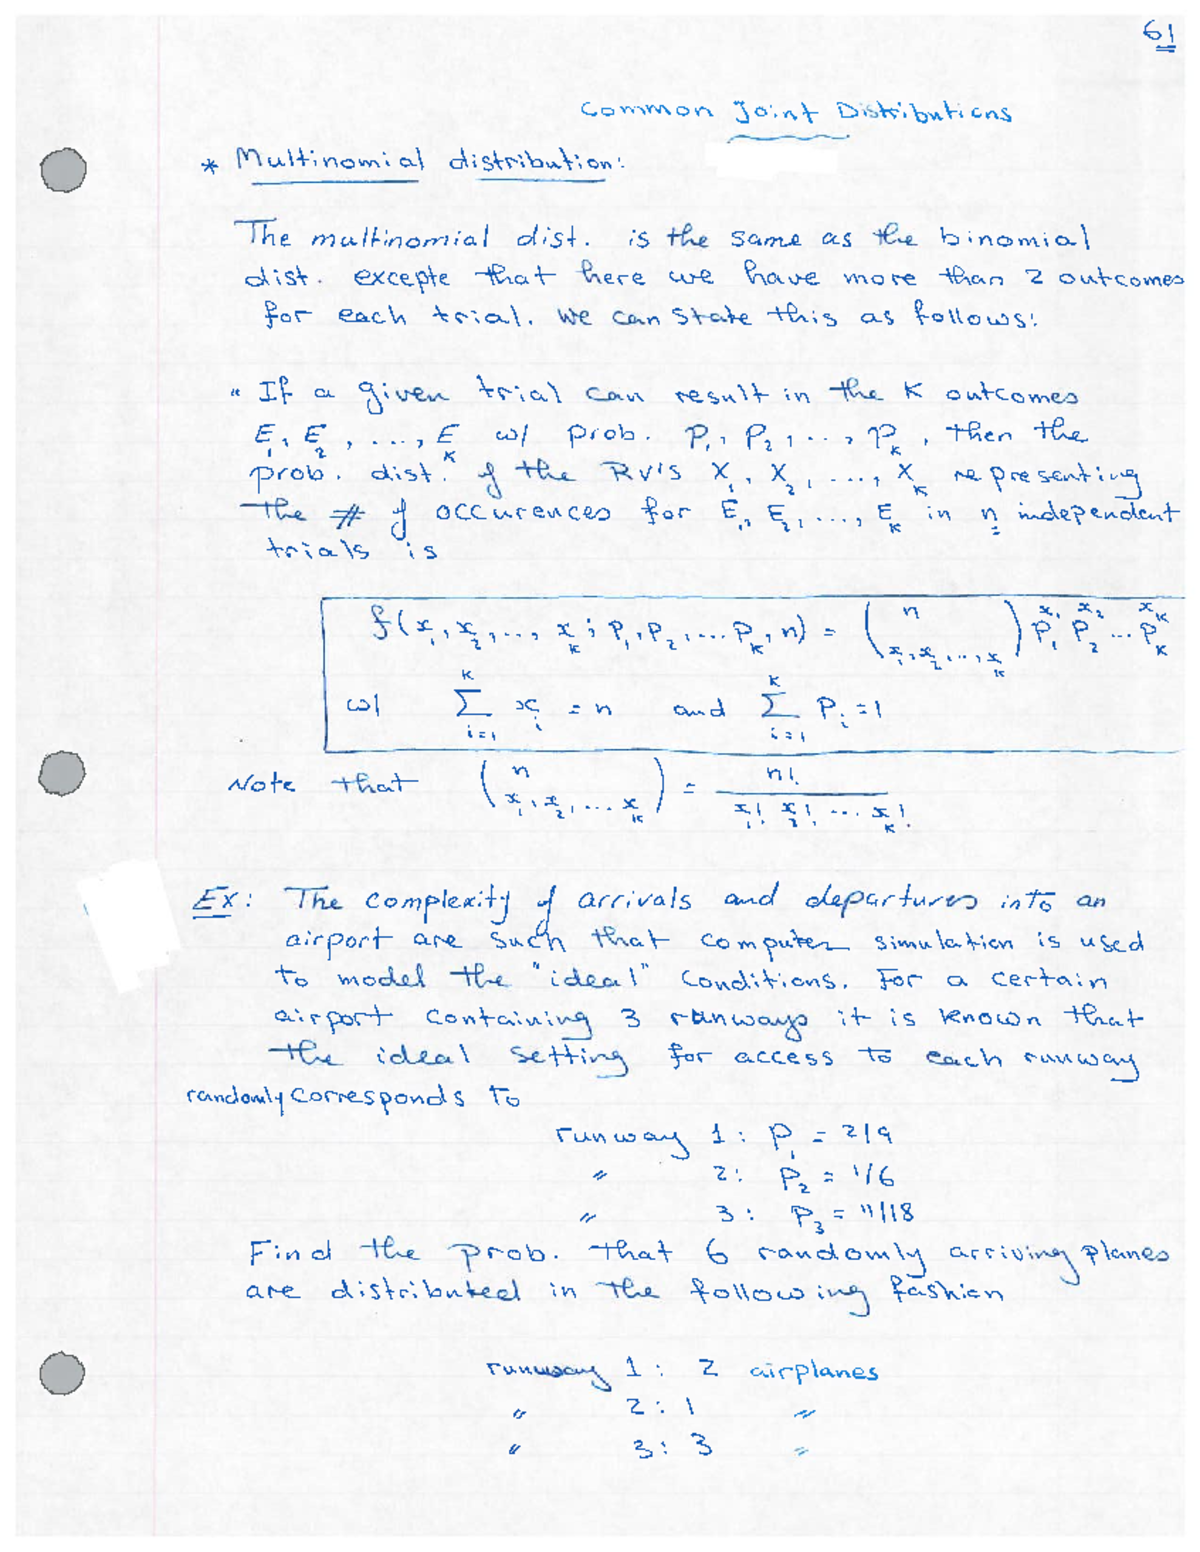 61
Common Joint Distributions
* Multinomial distribution:
The multinomial dist. is the same as the binomial
dist. excepte that here we have more than 2 outcomes
for each trial. We can state this as follows:
" If a given trial can result in the K outcomes
E₁, E₂, ..., E_K w/ prob. P₁, P₂, ..., P_K, then the
prob. dist. of the RV's X₁, X₂, ..., X_K representing
the # of occurences for E₁, E₂, ..., E_K in n independent
trials is
f(x₁, x₂, ..., x_K; P₁, P₂, ... P_K, n) = (n x₁, x₂, ..., x_K) P₁^x₁ P₂^x₂ ... P_K^x_K
w/ K Σ i=1 x_i = n and K Σ i=1 P_i = 1
Note that (n x₁, x₂, ... x_K) = n! / x₁! x₂! ... x_K!
Ex: The complexity of arrivals and departures into an
airport are such that computer simulation is used
to model the "ideal" conditions. For a certain
airport containing 3 runways it is known that
the ideal setting for access to each runway
randomly corresponds to
runway 1: P₁ = 2/9
" 2: P₂ = 1/6
" 3: P₃ = 11/18
Find the prob. that 6 randomly arriving planes
are distributed in the following fashion
runway 1: 2 airplanes
" 2: 1 "
" 3: 3 "